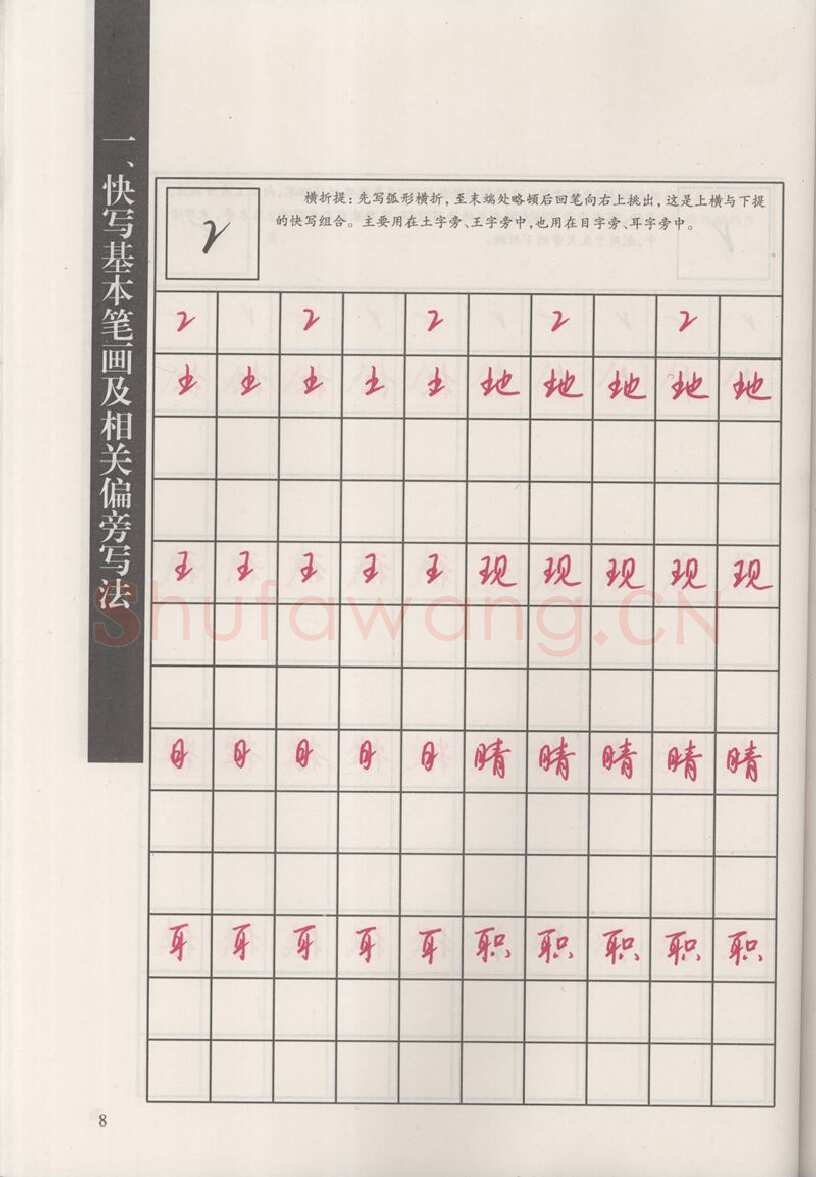 一、快写基本笔画及相关偏旁写法
横折提：先写弧形横折，至末端处略顿后回笔向右上挑出，这是上横与下提
的快写组合。主要用在土字旁、王字旁中，也用在目字旁、耳字旁中。
土 土 土 土 土 地 地 地 地 地
王 王 王 王 王 现 现 现 现 现
日 日 日 日 日 晴 晴 晴 晴 晴
耳 耳 耳 耳 耳 职 职 职 职 职
Shufawang.CN
8